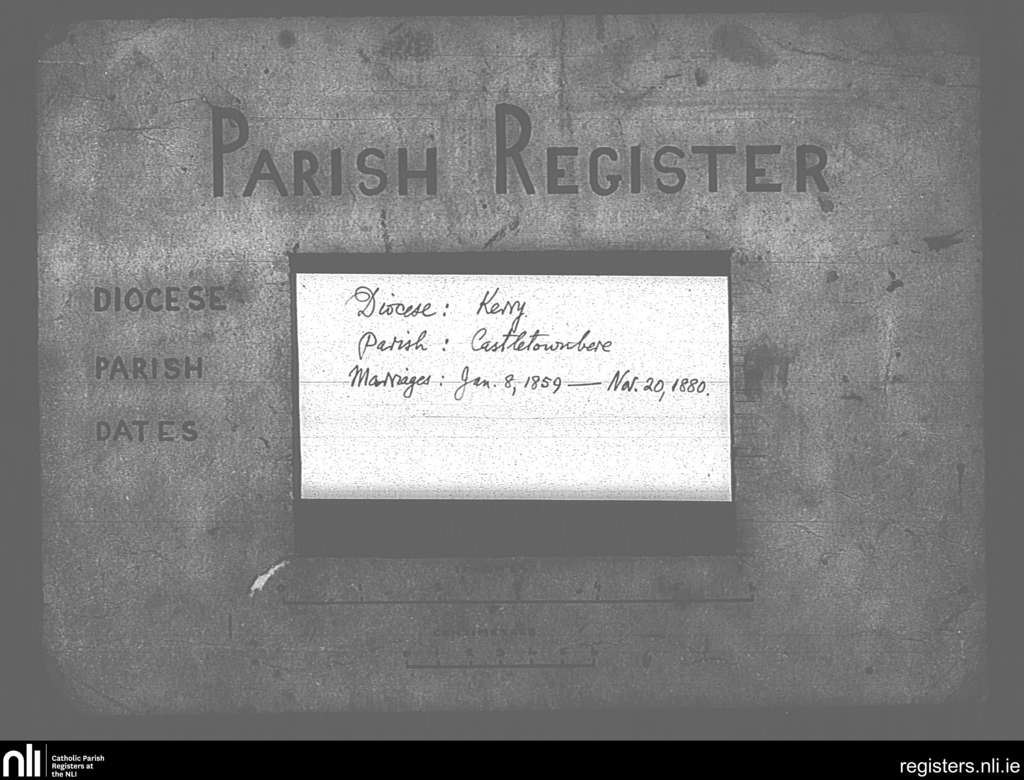 PARISH REGISTER
DIOCESE
PARISH
DATES
Diocese: Kerry
Parish: Castletownbere
Marriages: Jan. 8, 1859 — Nov. 20, 1880.
CENTIMETRES
nli
Catholic Parish
Registers at
the NLI
registers.nli.ie